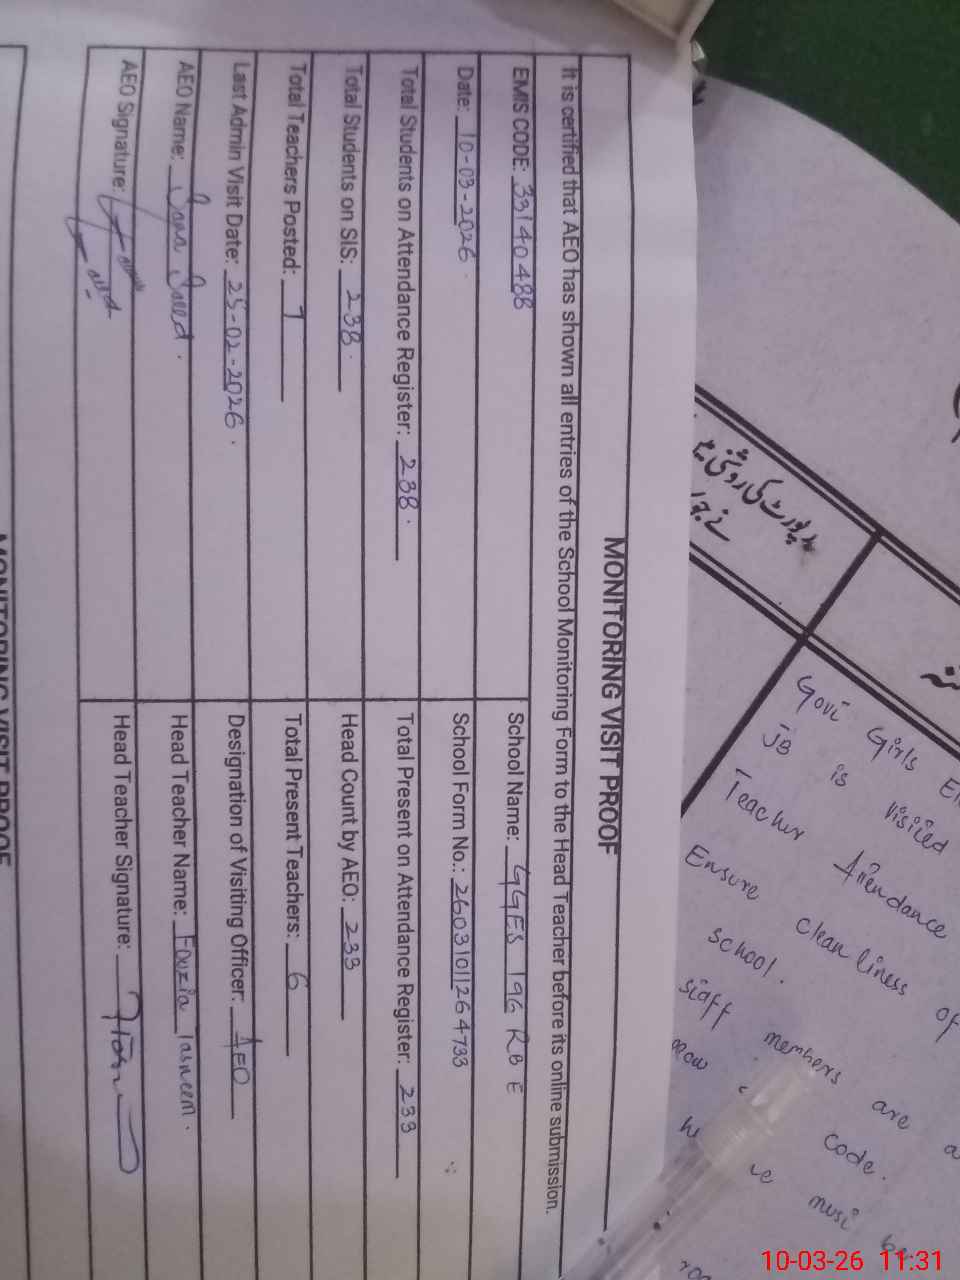 MONITORING VISIT PROOF
It is certified that AEO has shown all entries of the School Monitoring Form to the Head Teacher before its online submission.
EMIS CODE: 33140488
School Name: GGES 196 RB E
Date: 10-03-2026.
School Form No.: 26031011264733
Total Students on Attendance Register: 238.
Total Present on Attendance Register: 233
Total Students on SIS: 238.
Head Count by AEO: 233
Total Teachers Posted: 7
Total Present Teachers: 6
Last Admin Visit Date: 25-02-2026.
Designation of Visiting Officer: AEO
AEO Name: Saeed.
Head Teacher Name: Fouzia Tasneem.
AEO Signature:
Head Teacher Signature:
MONITORING VISIT PROOF
رپورٹ کی روشنی میں
نے جو
Govt Girls
JB is visited
Teacher Attendance
Ensure cleanliness of
school.
staff members are
code.
must be
10-03-26 11:31